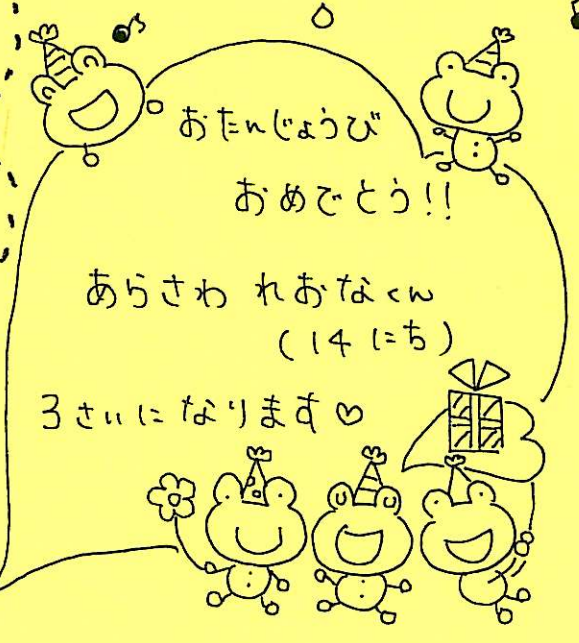 おたんじょうび
おめでとう!!
あらさわ れおなくん
(14にち)
3さいになります♡